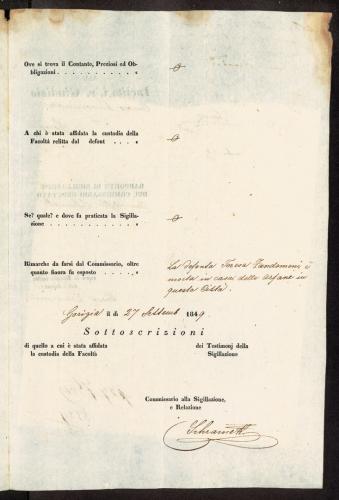 Ove si trova il Contante, Preziosi ed Ob-
bligazioni . . . . . . . . . .
A chi è stata affidata la custodia della
Facoltà relitta dal defont . . . .
Se? quale? e dove fu praticata la Sigilla-
zione . . . . . . . . . . . .
Rimarche da farsi dal Commissario, oltre
quanto finora fu esposto . . . . .
La defonta Teresa Vandomoni è
morta in casa delle orfane in
questa Città.
Gorizia li di 27 Settemb 1849.
Sottoscrizioni
di quello a chi è stata affidata
la custodia della Facoltà
dei Testimonj della
Sigillazione
Commissario alla Sigillazione,
e Relazione